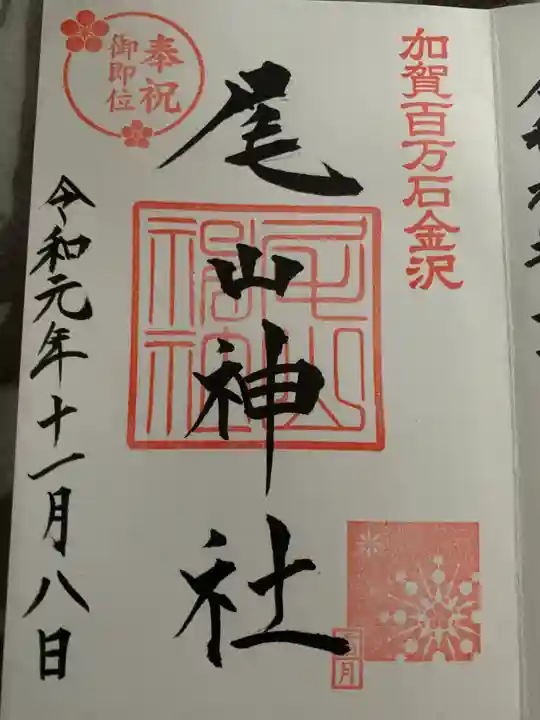 加賀百万石金沢
尾山神社
尾山神社
奉祝
御即位
令和元年十一月八日